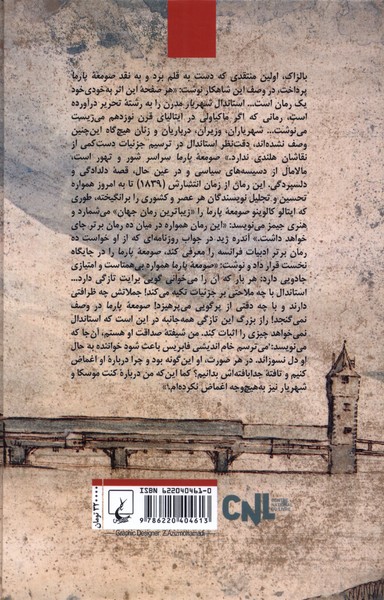 بالزاک، اولین منتقدی که دست به قلم برد و به نقد صومعهٔ پارما
پرداخت، در وصف این شاهکار نوشت: «هر صفحهٔ این اثر به‌خودی‌خود
یک رمان است... استاندال شهریار مدرن را به رشتهٔ تحریر درآورده
است، رمانی که اگر ماکیاولی در ایتالیای قرن نوزدهم می‌زیست
می‌نوشت... شهریاران، وزیران، درباریان و زنان هیچ‌گاه این‌چنین
وصف نشده‌اند، دقت‌نظر استاندال در ترسیم جزئیات دست‌کمی از
نقاشان هلندی ندارد.» صومعهٔ پارما سراسر شور و تهور است،
مالامال از دسیسه‌های سیاسی و در عین حال، قصهٔ دلدادگی و
دلسپردگی. این رمان از زمان انتشارش (۱۸۳۹) تا به امروز همواره
تحسین و تجلیل نویسندگان هر عصر و کشوری را برانگیخته، طوری
که ایتالو کالوینو صومعهٔ پارما را «زیباترین رمان جهان» می‌شمارد و
هنری جیمز می‌نویسد: «این رمان همواره در میان ده رمان برتر جای
خواهد داشت.» آندره ژید در جواب روزنامه‌ای که از او خواست ده
رمان برتر ادبیات فرانسه را معرفی کند، صومعهٔ پارما را در جایگاه
نخست قرار داد و نوشت: «صومعهٔ پارما همواره بی‌همتاست و امتیازی
جادویی دارد: هر بار که آن را می‌خوانی گویی برایت تازگی دارد...
استاندال با چه ملاحتی بر جزئیات تکیه می‌کند! جملاتش چه ظرافتی
دارند و با چه دقتی از پرگویی می‌پرهیزد! صومعهٔ پارما در وصف
نمی‌گنجد! راز بزرگ این تازگی همه‌جانبه در این است که استاندال
نمی‌خواهد چیزی را اثبات کند. من شیفتهٔ صداقت او هستم، آن‌جا که
می‌نویسد: 'می‌ترسم خام اندیشی فابریس باعث شود خواننده به حال
او دل نسوزاند. در هر صورت، او این‌گونه بود و چرا دربارهٔ او اغماض
کنیم و تافتهٔ جدابافته‌اش بدانیم؟ کما این‌که من دربارهٔ کنت موسکا و
شهریار نیز به‌هیچ‌وجه اغماض نکرده‌ام.'»
۳۲۰۰۰۰ تومان
ISBN 622040461-0
9 786220 404613
CNL
Graphic Designer: Z.Azizmohamadi